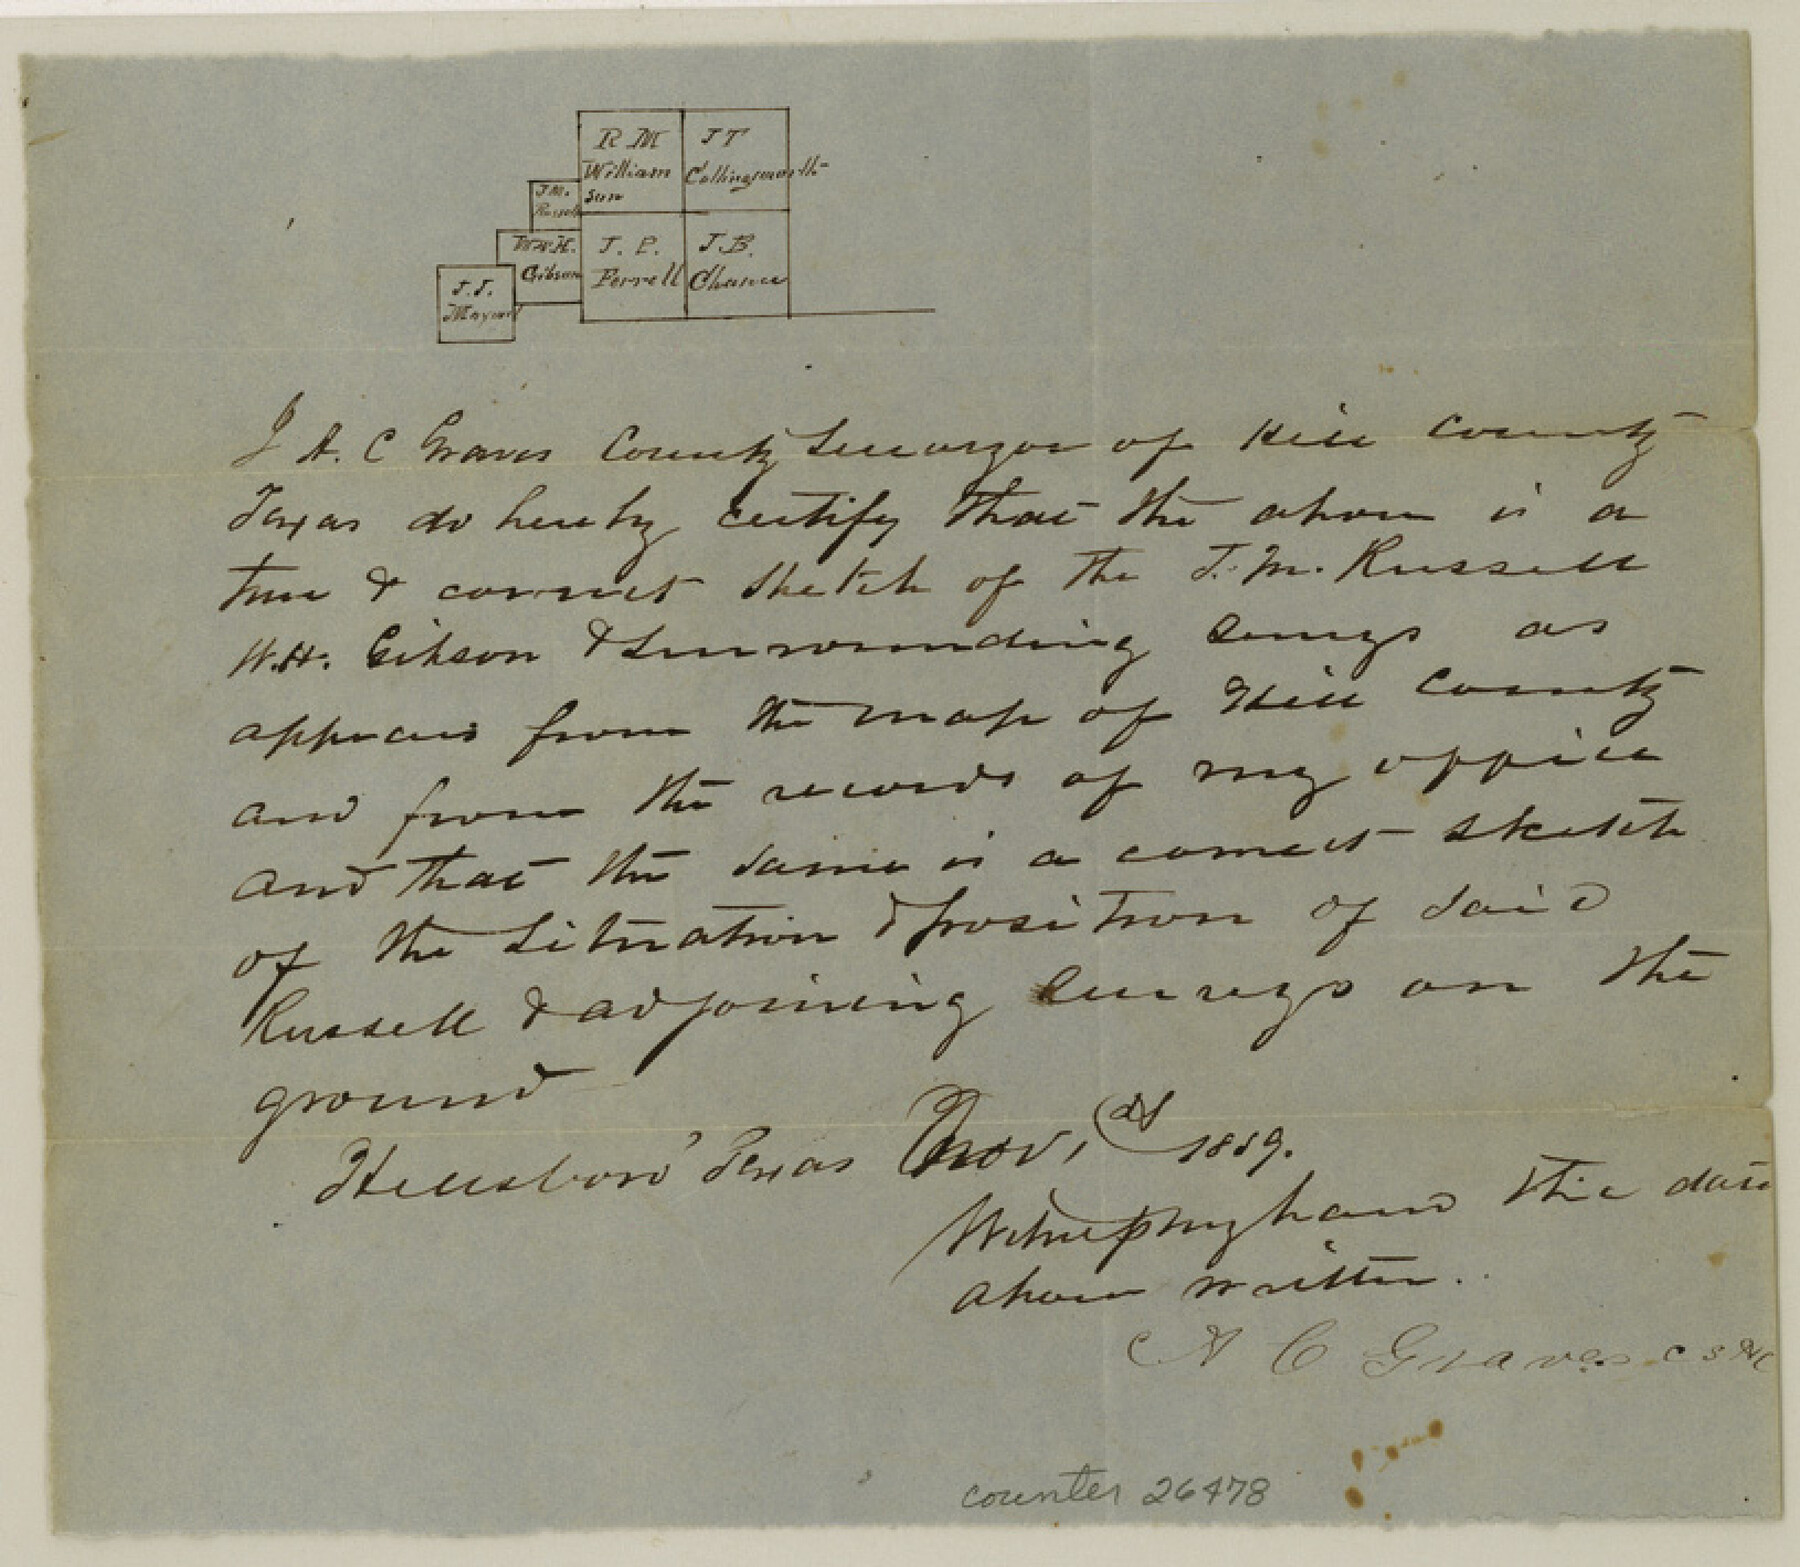 R M
William
son
J T
Collingsworth
J.M.
Russell
Wm H.
Gibson
J. P.
Ferrell
J. B.
Chance
J. J.
I A. C Graves County Surveyor of Hill County
Texas do hereby certify that the above is a
true & correct sketch of the J. M. Russell
W. H. Gibson & Surrounding Surveys as
appears from the map of Hill County
and from the records of my office
and that the same is a correct sketch
of the Situation & position of said
Russell & adjoining Surveys on the
ground
Hillsboro' Texas Nov, 1859.
Witness my hand the date
above written.
A C Graves C S H C
counter 26478